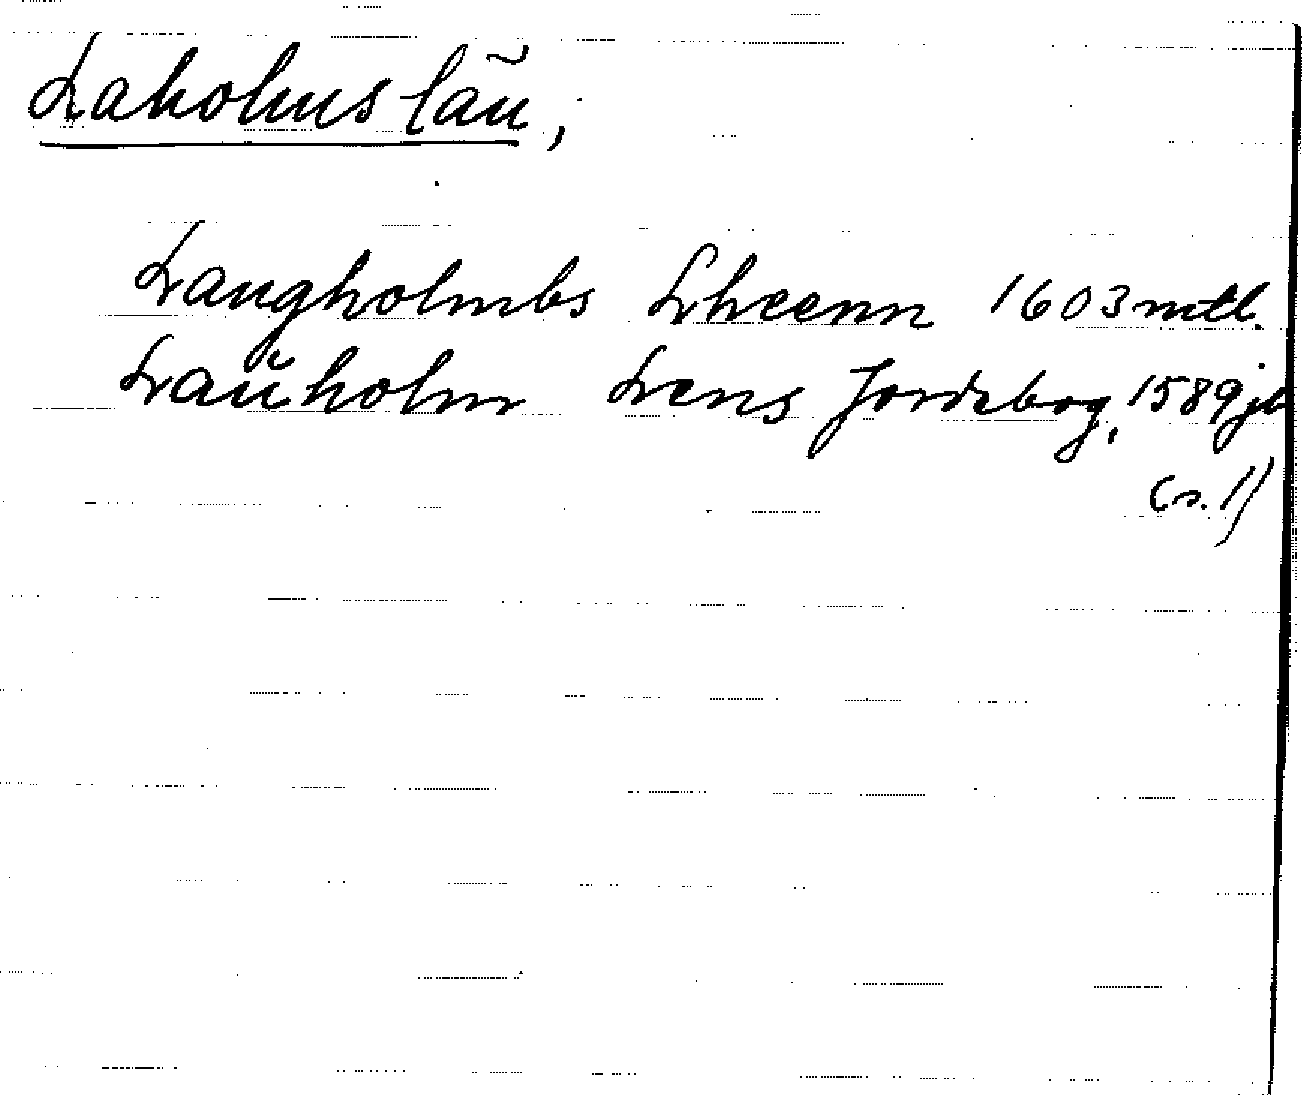 Laholms län,
Laugholmbs Lheenn 1603 mtl.
Lauholm Lens Jordebog, 1589 jb
(s. 1)